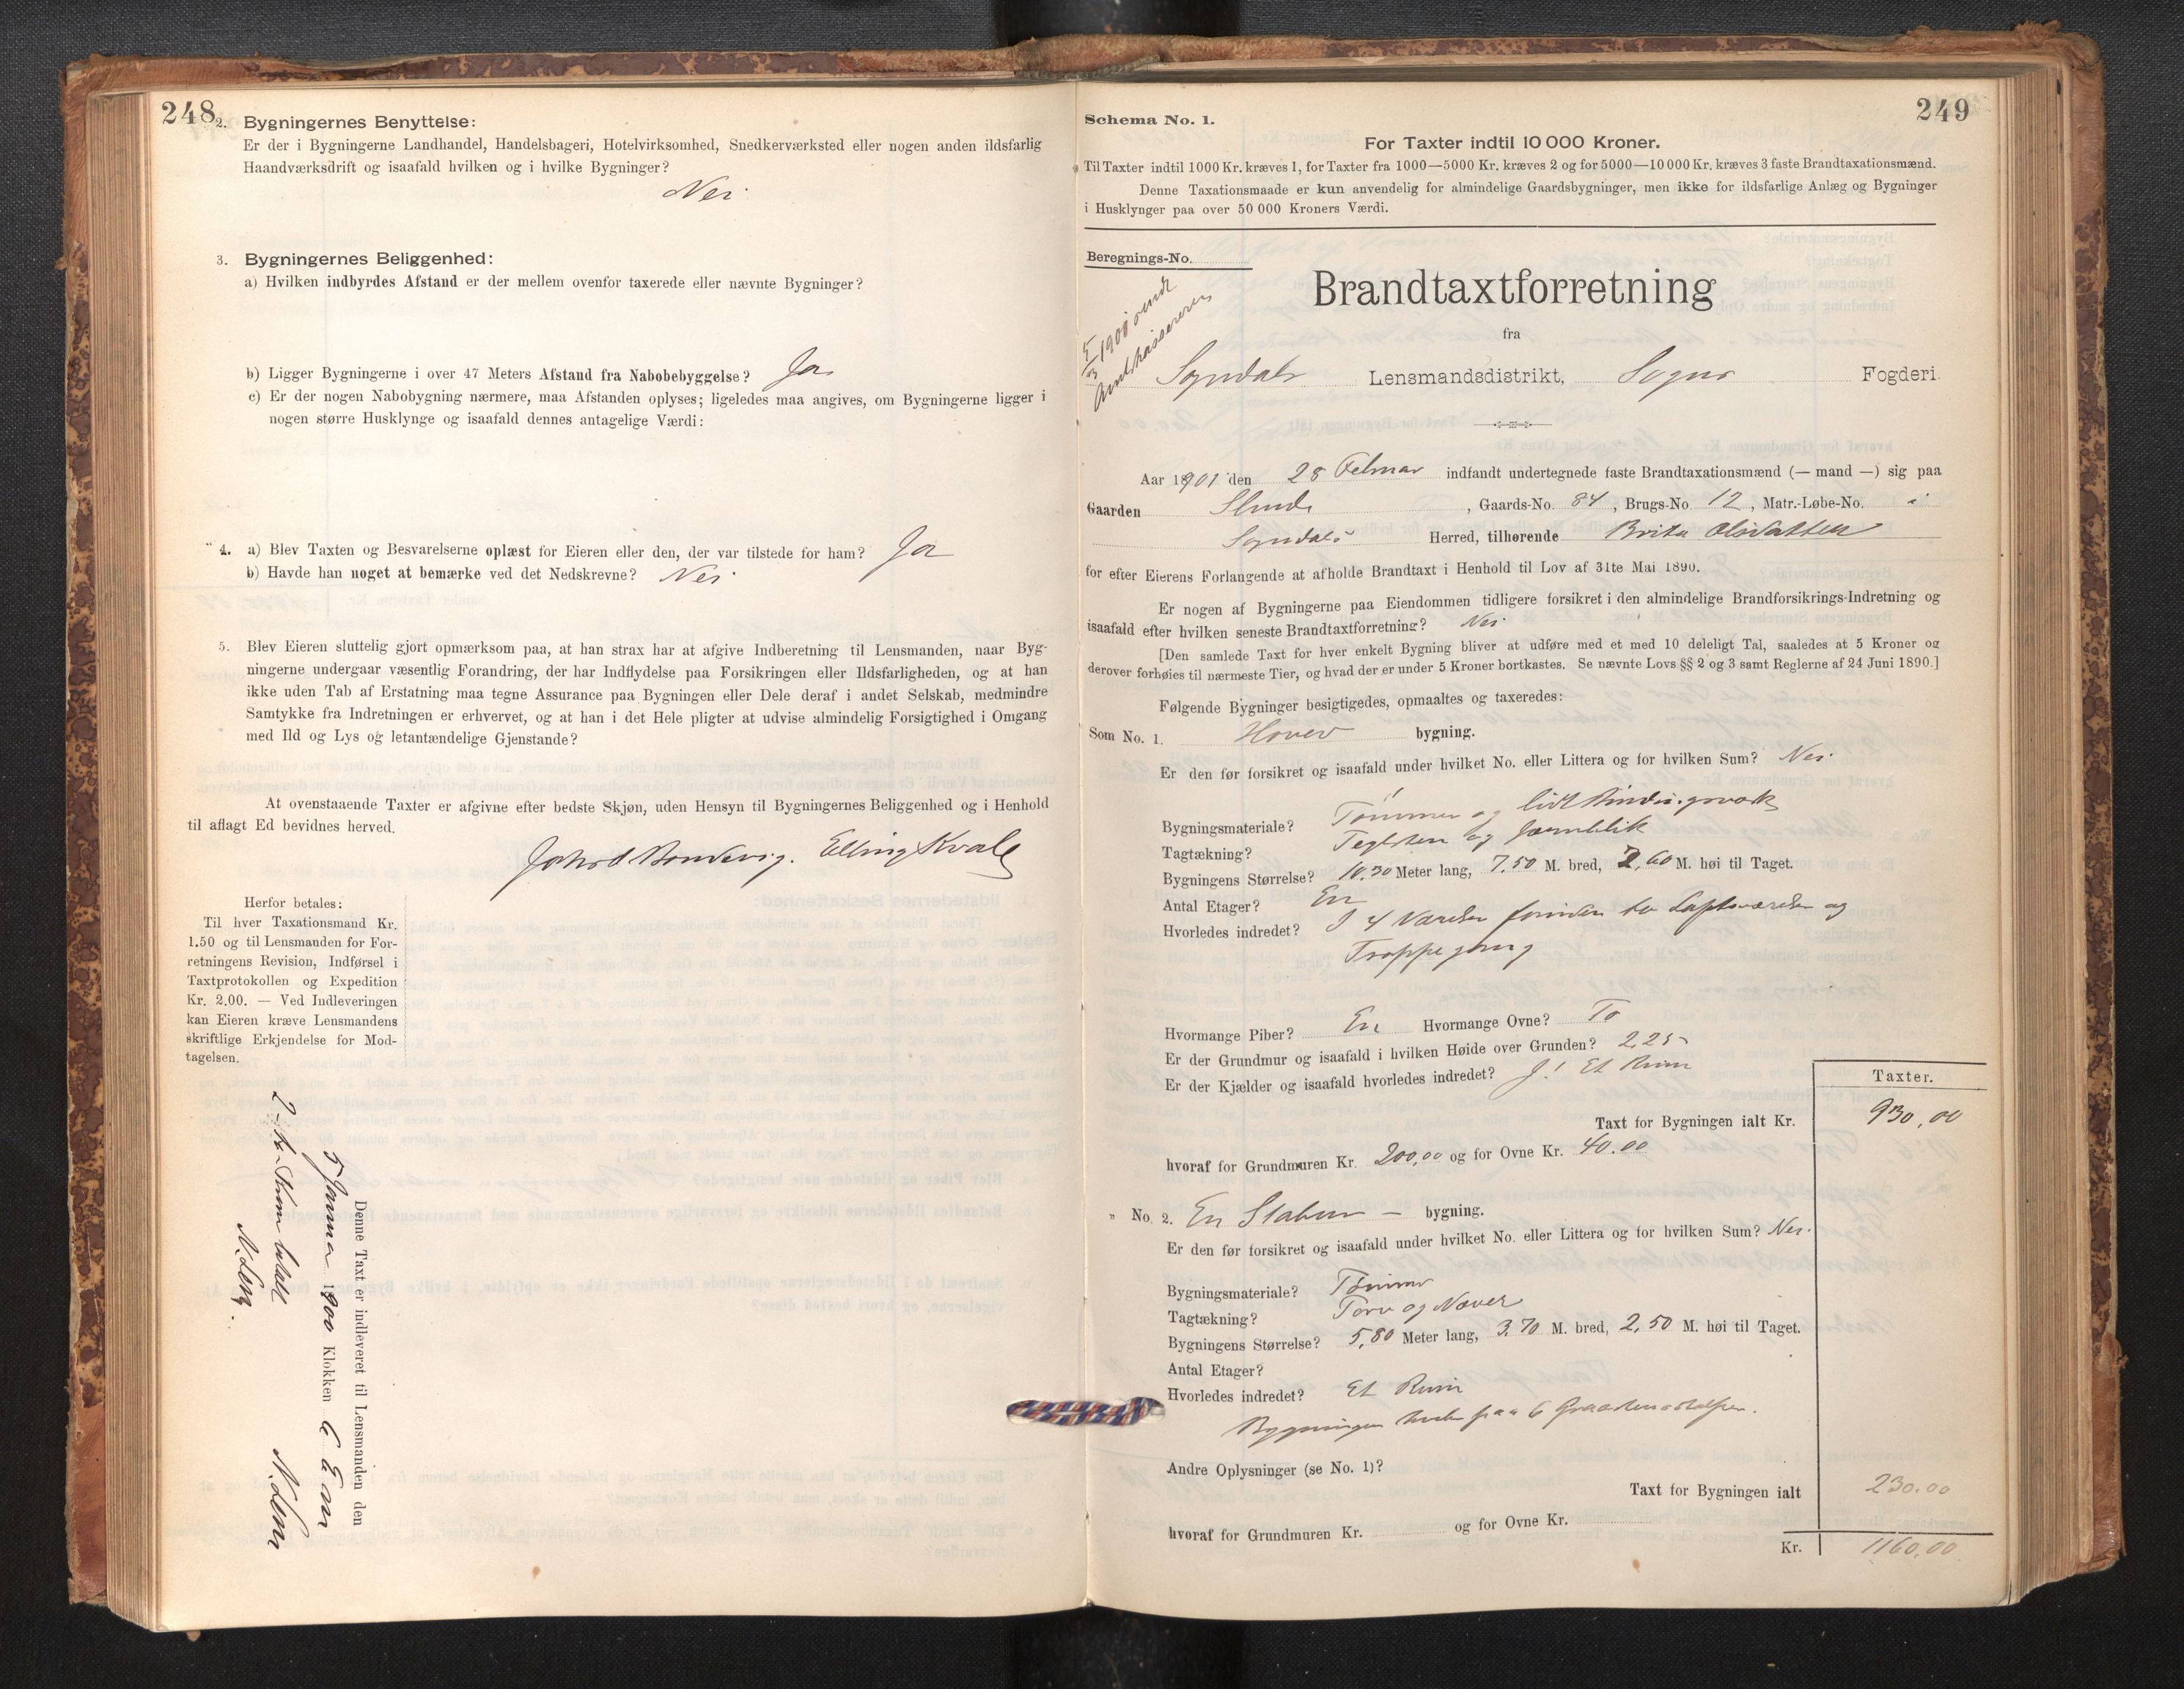 248
2. Bygningernes Benyttelse:
Er der i Bygningerne Landhandel, Handelsbageri, Hotelvirksomhed, Snedkerværksted eller nogen anden ildsfarlig
Haandværksdrift og isaafald hvilken og i hvilke Bygninger?
Nei
3. Bygningernes Beliggenhed:
a) Hvilken indbyrdes Afstand er der mellem ovenfor taxerede eller nævnte Bygninger?
b) Ligger Bygningerne i over 47 Meters Afstand fra Nabobebyggelse? Ja
c) Er der nogen Nabobygning nærmere, maa Afstanden oplyses; ligeledes maa angives, om Bygningerne ligger i
nogen større Husklynge og isaafald dennes antagelige Værdi:
4. a) Blev Taxten og Besvarelserne oplæst for Eieren eller den, der var tilstede for ham? Ja
b) Havde han noget at bemærke ved det Nedskrevne? Nei
5. Blev Eieren sluttelig gjort opmærksom paa, at han strax har at afgive Indberetning til Lensmanden, naar Byg-
ningerne undergaar væsentlig Forandring, der har Indflydelse paa Forsikringen eller Ildsfarligheden, og at han
ikke uden Tab af Erstatning maa tegne Assurance paa Bygningen eller Dele deraf i andet Selskab, medmindre
Samtykke fra Indretningen er erhvervet, og at han i det Hele pligter at udvise almindelig Forsigtighed i Omgang
med Ild og Lys og letantændelige Gjenstande?
At ovenstaaende Taxter er afgivne efter bedste Skjøn, uden Hensyn til Bygningernes Beliggenhed og i Henhold
til aflagt Ed bevidnes herved.
Bondevig. Elling Kvale
Herfor betales:
Til hver Taxationsmand Kr.
1.50 og til Lensmanden for For-
retningens Revision, Indførsel i
Taxtprotokollen og Expedition
Kr. 2.00. — Ved Indleveringen
kan Eieren kræve Lensmandens
skriftlige Erkjendelse for Mod-
tagelsen.
Denne Taxt er indleveret til Lensmanden den
5 1900 Klokken 6 Em
N. Lem
2 - to - Kroner betalt
N. Lem.
249
Schema No. 1.
For Taxter indtil 10 000 Kroner.
Til Taxter indtil 1000 Kr. kræves 1, for Taxter fra 1000—5000 Kr. kræves 2 og for 5000—10 000 Kr. kræves 3 faste Brandtaxationsmænd.
Denne Taxationsmaade er kun anvendelig for almindelige Gaardsbygninger, men ikke for ildsfarlige Anlæg og Bygninger
i Husklynger paa over 50 000 Kroners Værdi.
Beregnings-No.
5/3 1900 sendt
Amtskassereren
Brandtaxtforretning
fra
Sogndals Lensmandsdistrikt, Sogns Fogderi
Aar 1901 den 28 Februar indfandt undertegnede faste Brandtaxationsmænd (— mand —) sig paa
Gaarden , Gaards-No. 84, Brugs-No. 12, Matr.-Løbe-No. i
Sogndals Herred, tilhørende Brita Olsdatter
for efter Eierens Forlangende at afholde Brandtaxt i Henhold til Lov af 31te Mai 1890.
Er nogen af Bygningerne paa Eiendommen tidligere forsikret i den almindelige Brandforsikrings-Indretning og
isaafald efter hvilken seneste Brandtaxtforretning? Nei
[Den samlede Taxt for hver enkelt Bygning bliver at udføre med et med 10 deleligt Tal, saaledes at 5 Kroner og
derover forhøies til nærmeste Tier, og hvad der er under 5 Kroner bortkastes. Se nævnte Lovs §§ 2 og 3 samt Reglerne af 24 Juni 1890.]
Følgende Bygninger besigtigedes, opmaaltes og taxeredes:
Som No. 1. Hoved bygning.
Er den før forsikret og isaafald under hvilket No. eller Littera og for hvilken Sum? Nei
Bygningsmateriale? Tømmer og lidt Bindingsværk
Tagtækning? Teglsten og Jernblik
Bygningens Størrelse? 10.30 Meter lang, 7.50 M. bred, 2,60 M. høi til Taget.
Antal Etager? En
Hvorledes indredet? I 4 Værelser foruden to Loftsværelser og
Trappegang
Hvormange Piber? En Hvormange Ovne? To
Er der Grundmur og isaafald i hvilken Høide over Grunden? 2,25
Er der Kjælder og isaafald hvorledes indredet? J! Et Rum
Taxter.
Taxt for Bygningen ialt Kr. 930,00
hvoraf for Grundmuren Kr. 200,00 og for Ovne Kr. 40.00
" No. 2. En Stabur — bygning.
Er den før forsikret og isaafald under hvilket No. eller Littera og for hvilken Sum? Nei.
Bygningsmateriale? Tømmer
Tagtækning? Torv og Næver
Bygningens Størrelse? 5,80 Meter lang, 3.70 M. bred, 2,50 M. høi til Taget.
Antal Etager?
Hvorledes indredet? Et Rum
Bygningen paa 6
Andre Oplysninger (se No. 1)?
Taxt for Bygningen ialt 230.00
hvoraf for Grundmuren Kr. og for Ovne Kr.
Kr. 1160,00